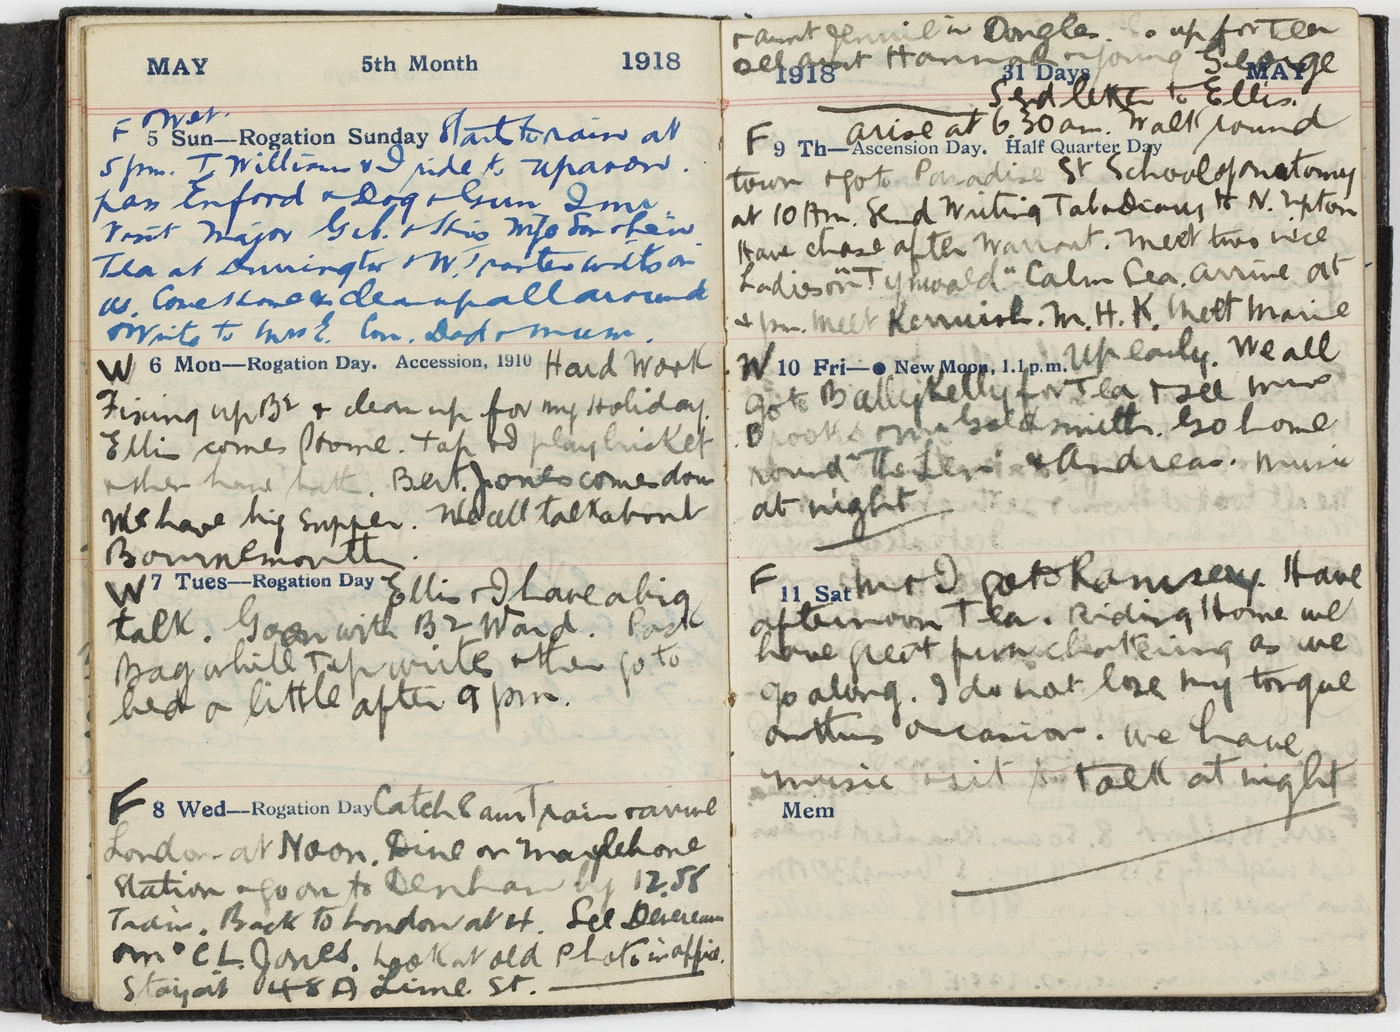 MAY 5th Month 1918
F Wet.
5 Sun—Rogation Sunday Starts to rain at
5 pm. T Williams & I ride to Upavon.
pass Enford & Dog & Gun Inn
Visit Major Gib. & his wife
Tea at & W. on
us. Come Home & clean up all around
Write to Mrs E. Con. Dad & Mum.
W 6 Mon—Rogation Day. Accession, 1910 Hard Work
Fixing up B2 & clean up for my Holiday.
Ellis comes home. Tap & I play cricket
& then have bath. Bert. Jones comes down
We have big supper. We all talk about
Bournemouth.
W 7 Tues—Rogation Day Ellis & I have a big
talk. Go on with B2 Ward. Pack
Bag while Tap writes & then go to
bed a little after 9 pm.
F 8 Wed—Rogation Day Catch 8 am Train & arrive
London at Noon. Dine on Maylebone
Station & go on to Denham by 12.58
Train. Back to London at 4. See Devereau
C L. Jones. Look at old Photo in office.
Stay at 48 A Lime St.
& aunt Jennie in Douglas. up for Tea
see aunt Hannah & young George
1918 31 Days MAY
Send letter to Ellis.
F arise at 6.30 am. Walk round
9 Th—Ascension Day. Half Quarter Day
town & go to Paradise St School of anatomy
at 10 Am. Send Writing Tab & Diary to N. Upton
Have chase after Warrant. Meet two nice
Ladies on "Tynwald" Calm Sea. arrive at
4 pm. Meet Kerruish. M. H. K. Meet Marie
W 10 Fri—● New Moon, 1.1 p.m. Up early. We all
go to Ballykelly for Tea & see Mrs
Brooks & Goldsmith. Go home
round "The Len" & Andreas. Music
at night
F 11 Sat M & I go to Ramsey. Have
afternoon Tea. Riding Home we
have great fun chattering as we
go along. I do not lose my torque
on this occasion. we have
music & sit & talk at night
Mem